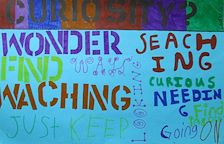 CURIOSITY?
WONDER
FIND
WAYS
WACHING
JUST KEEP
LOOKING
SEACH
ING
CURIOUS
NEEDIN
G
Find
Going On